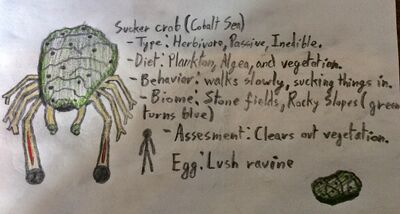 Sucker crab (Cobalt Sea)
- Type: Herbivore, Passive, Inedible.
- Diet: Plankton, Algea, and vegetation.
- Behavior: walks slowly, sucking things in.
- Biome: Stone fields, Rocky Slopes (green
turns blue)
- Assesment: Clears out vegetation.
Egg: Lush ravine